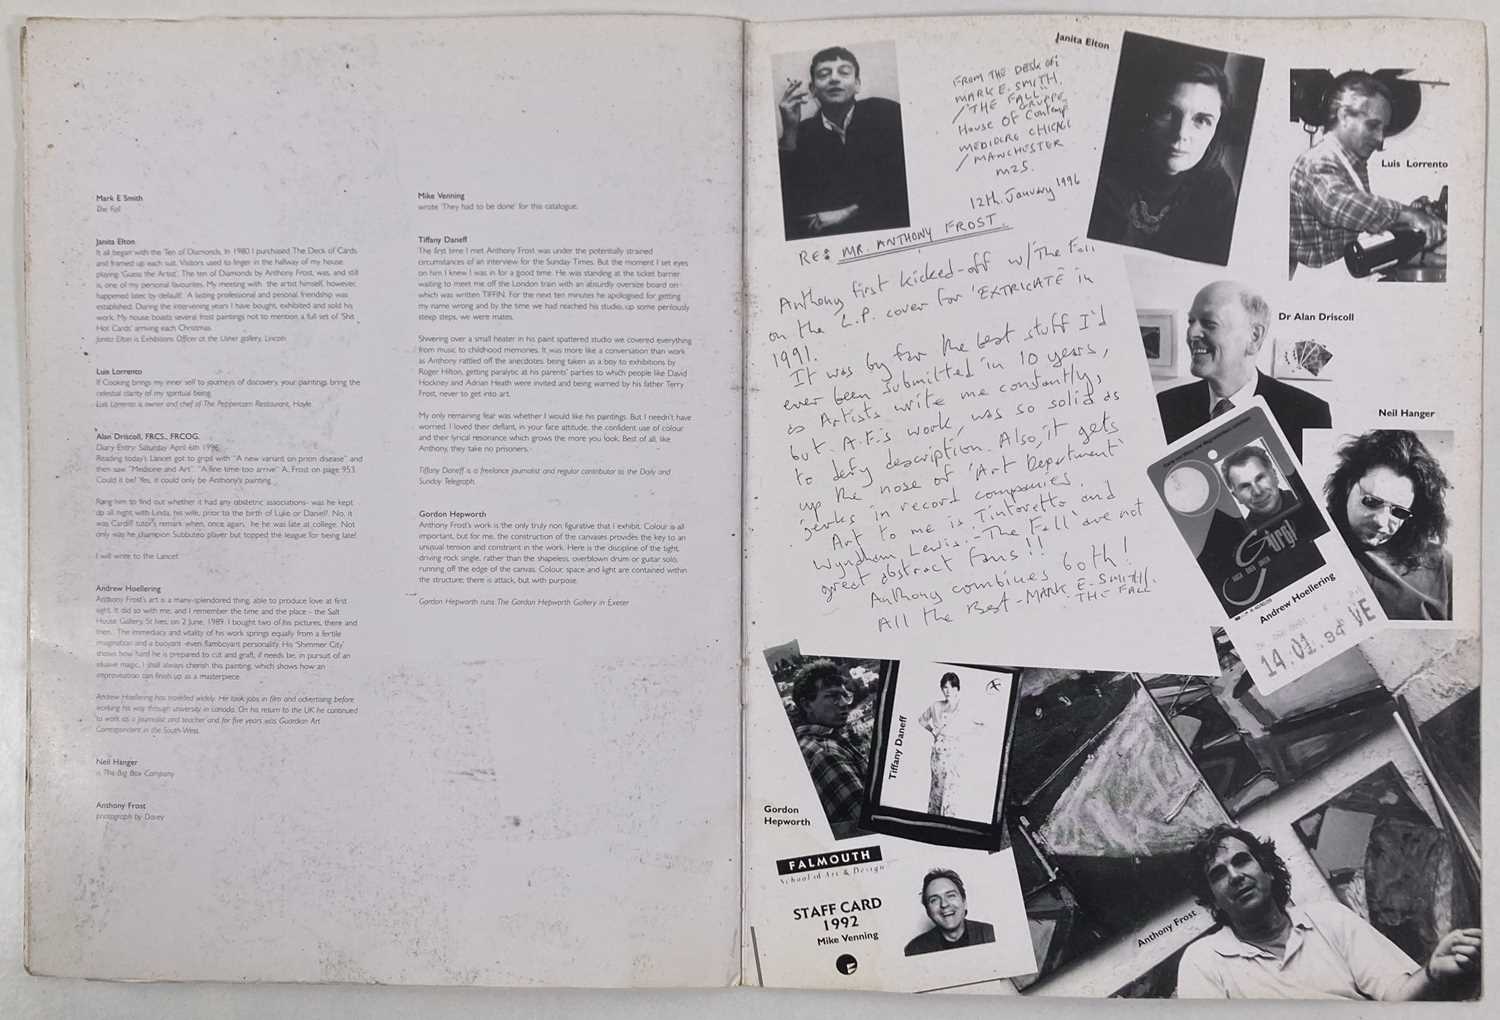 Mark E Smith
The Fall
Janita Elton
It all began with the Ten of Diamonds. In 1980 I purchased The Deck of Cards
and framed up each suit. Visitors used to linger in the hallway of my house
playing 'Guess the Artist'. The ten of Diamonds by Anthony Frost, was, and still
is, one of my personal favourites. My meeting with the artist himself, however,
happened later, by default! A lasting professional and pesonal friendship was
established. During the intervening years I have bought, exhibited and sold his
work. My house boasts several frost paintings not to mention a full set of 'Shit
Hot Cards' arriving each Christmas.
Janita Elton is Exhibitions Officer at the Usher gallery, Lincoln
Luis Lorrento
If Cooking brings my inner self to journeys of discovery, your paintings bring the
celestial clarity of my spiritual being.
Luis Lorrento is owner and chef of The Peppercorn Restaurant, Hayle.
Alan Driscoll, FRCS., FRCOG.
Diary Entry: Saturday April 6th 1996.
Reading today's Lancet got to grips with "A new variant on prion disease" and
then saw "Medicine and Art". "A fine time too arrive" A. Frost on page 953.
Could it be? Yes, it could only be Anthony's painting.
Rang him to find out whether it had any obstetric associations- was he kept
up all night with Linda, his wife, prior to the birth of Luke or Daniel?. No, it
was Cardiff tutor's remark when, once again, he he was late at college. Not
only was he champion Subbuteo player but topped the league for being late!
I will write to the Lancet.
Andrew Hoellering
Anthony Frost's art is a many-splendored thing, able to produce love at first
sight. It did so with me, and I remember the time and the place - the Salt
House Gallery, St Ives, on 2 June, 1989. I bought two of his pictures, there and
then. The immediacy and vitality of his work springs equally from a fertile
imagination and a buoyant -even flamboyant personality. His 'Shimmer City'
shows how hard he is prepared to cut and graft, if needs be, in pursuit of an
elusive magic. I shall always cherish this painting, which shows how an
improvisation can finish up as a masterpiece.
Andrew Hoellering has travelled widely. He took jobs in film and advertising before
working his way through university in canada. On his return to the UK he continued
to work as a journalist and teacher and for five years was Guardian Art
Correspondent in the South West.
Neil Hanger
is The Big Box Company
Anthony Frost
photograph by Davey
Mike Venning
wrote 'They had to be done' for this catalogue.
Tiffany Daneff
The first time I met Anthony Frost was under the potentially strained
circumstances of an interview for the Sunday Times. But the moment I set eyes
on him I knew I was in for a good time. He was standing at the ticket barrier
waiting to meet me off the London train with an absurdly oversize board on
which was written TIFFIN. For the next ten minutes he apologised for getting
my name wrong and by the time we had reached his studio, up some perilously
steep steps, we were mates.
Shivering over a small heater in his paint spattered studio we covered everything
from music to childhood memories. It was more like a conversation than work
as Anthony rattled off the anecdotes: being taken as a boy to exhibitions by
Roger Hilton, getting paralytic at his parents' parties to which people like David
Hockney and Adrian Heath were invited and being warned by his father Terry
Frost, never to get into art.
My only remaining fear was whether I would like his paintings. But I needn't have
worried. I loved their defiant, in your face attitude, the confident use of colour
and their lyrical resonance which grows the more you look. Best of all, like
Anthony, they take no prisoners.
Tiffany Daneff is a freelance journalist and regular contributor to the Daily and
Sunday Telegraph.
Gordon Hepworth
Anthony Frost's work is the only truly non figurative that I exhibit. Colour is all
important, but for me, the construction of the canvases provides the key to an
unusual tension and constraint in the work. Here is the discipline of the tight,
driving rock single, rather than the shapeless, overblown drum or guitar solo,
running off the edge of the canvas. Colour, space and light are contained within
the structure; there is attack, but with purpose.
Gordon Hepworth runs The Gordon Hepworth Gallery in Exeter
FROM THE DESK OF:
MARK E. SMITH,
/"THE FALL"
GRUPPE
HOUSE OF Contemp
MEDIOCRE CHICAGE
/MANCHESTER
M25.
12th. January 1996
RE: MR. ANTHONY FROST.
Anthony first kicked-off w/The Fall
on the L.P. cover for 'EXTRICATE' in
1991.
It was by far the best stuff I'd
ever been submitted in 10 years,
as Artists write me constantly,
but A.F.'s work, was so solid as
to defy description. Also, it gets
up the nose of 'Art Department'
jerks in record companies.
Art to me is Tintoretto and
Wyndham Lewis:- 'The Fall' are not
great abstract fans!!
Anthony combines both!
All the Best - MARK. E. SMITH/.
THE FALL
Janita Elton
Luis Lorrento
Dr Alan Driscoll
Neil Hanger
Andrew Hoellering
14.01.94 VE
Gordon
Hepworth
Tiffany Daneff
FALMOUTH
School of Art & Design
STAFF CARD
1992
Mike Venning
Anthony Frost